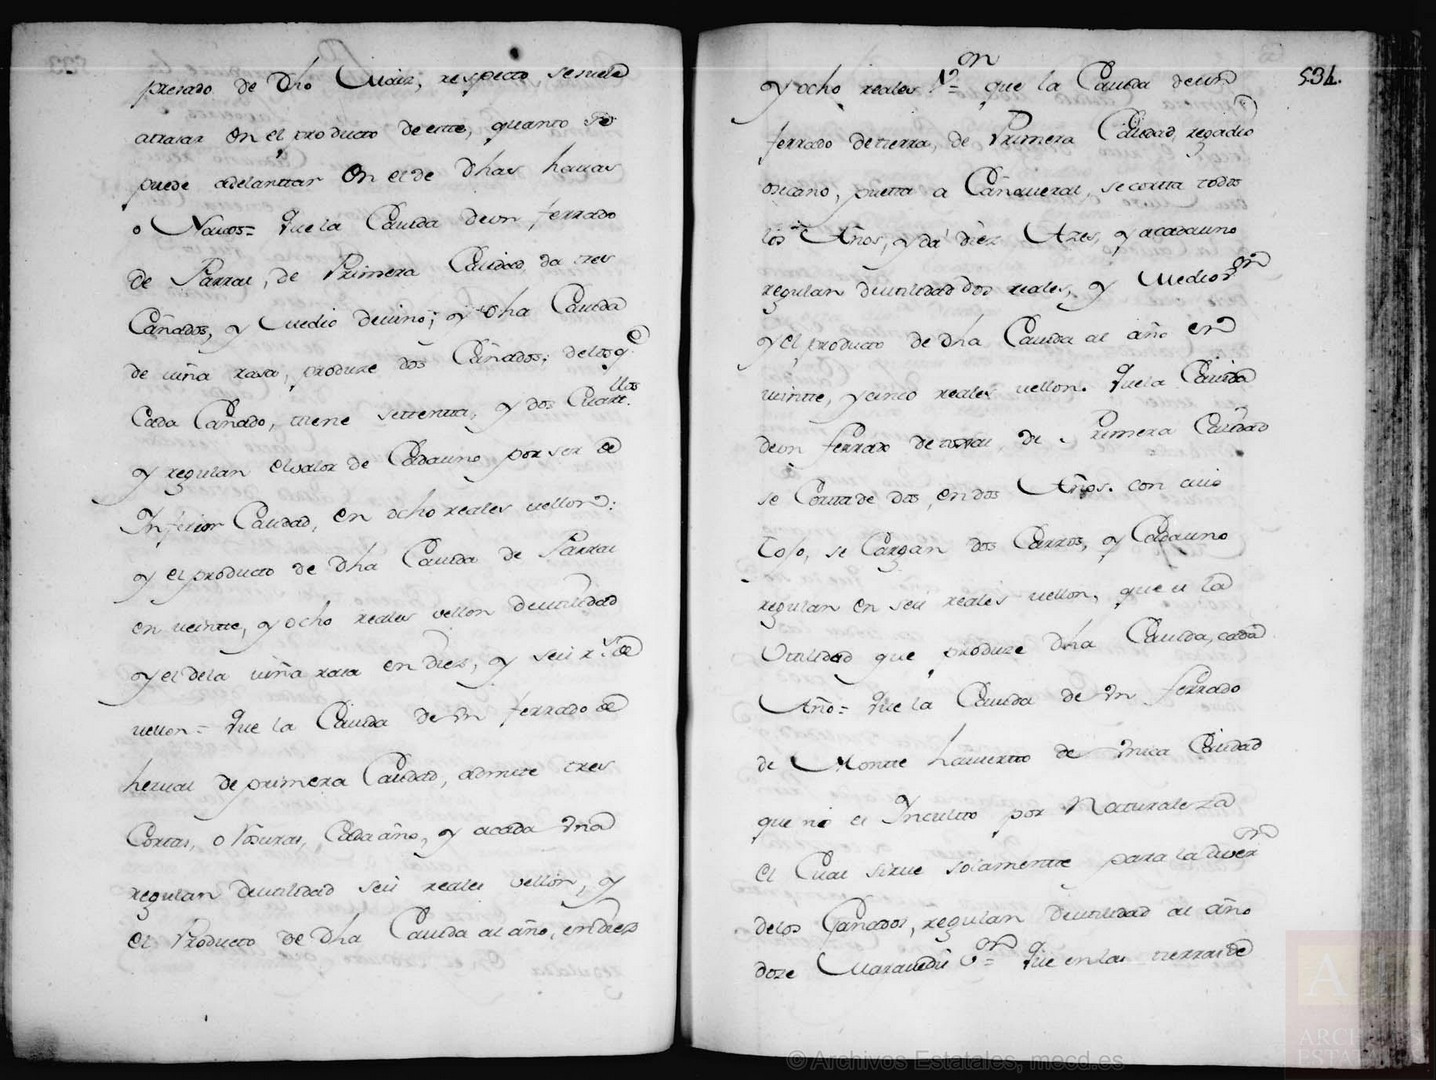 presado de Dho Maiz, respecto, se suele
atrasar en el producto de este, quanto se
puede adelanttar en el de Dhas havas
o Navos= Que la Cavida de un, ferrado
de Parral, de Primera Calidad, da tres
Cañados, y medio de vino; y dha Cavida
de viña rasa, produze dos Cañados; de los q.e
Cada Cañado, tiene settentta, y dos Quartt.llos
y regulan el valor de Cada uno por ser de
Inferior Calidad, en ocho reales vellon:
y el producto de Dha Cavida de Parral
en veintte, y ocho reales vellon de utilidad
y el de la viña rasa en Diez, y seis r.s de
vellon= Que la Cavida de Un ferrado de
herval de primera Calidad, admite tres
Cortas, o Rozuras, Cada año, y a cada Una
regulan de utilidad seis reales vellon, y
el Producto de Dha Cavida al año, en Diez
y ocho reales V.on= que la Cavida de un
534.
ferrado de tierra, de Primera Calidad, regadio
o secano, puesta a Cañaveral, se corta todos
los Años, y da diez Azes, y a cada uno
regulan de utilidad dos reales, y medio v.on
y el producto de Dha Cavida al año en
veintte, y cinco reales vellon. Que la Cavida
de un ferrado de toxal, de Primera Calidad
se Corta de dos, en dos Años. con cuio
Tojo, se Cargan dos Carros, y Cada uno
regulan en seis reales vellon, que es la
Utilidad que produze Dha Cavida, cada
Año= Que la Cavida de Un ferrado
de Montte havierto de Unica Calidad
que no es Inculto por Naturaleza
el Cual sirve solamentte para la diver.on
de los Ganados, regulan de utilidad al año
doze Maravedis V.on= Que en las tierras de
© Archivos Estatales, mecd.es
ARCHIVOS
ESTATALES